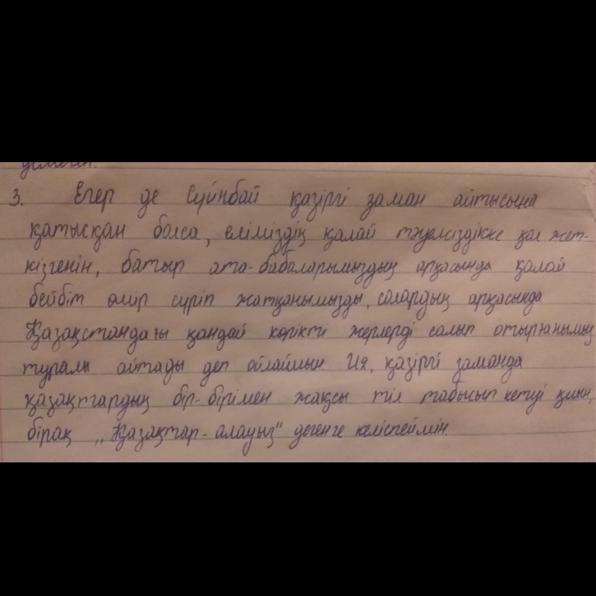 3. Егер де Сүйнбай қазіргі заман айтысына
қатысқан болса, еліміздің қалай тәуелсіздікке қол жет-
кізгенін, батыр ата-бабаларымыздың арқасында қалай
бейбіт өмір сүріп жатқанымызды, солардың арқасында
Қазақстандағы қандай көрікті жерлерді салып отырғанымыз
туралы айтады деп ойлаймын. Ия, қазіргі заманда
қазақтардың бір-бірімен жақсы тіл табысып кетуі қиын,
бірақ "Қазақтар-алауыз" дегенге келіспеймін.